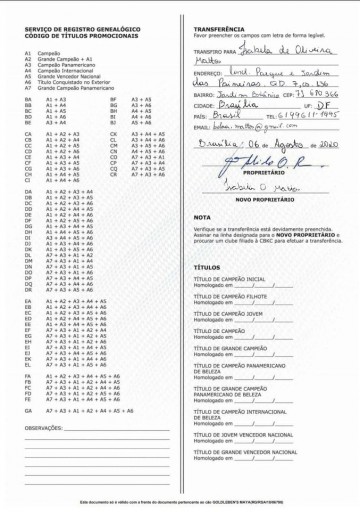 SERVIÇO DE REGISTRO GENEALÓGICO
CÓDIGO DE TÍTULOS PROMOCIONAIS
A1 Campeão
A2 Grande Campeão + A1
A3 Campeão Panamericano
A4 Campeão Internacional
A5 Grande Vencedor Nacional
A6 Título Conquistado no Exterior
A7 Grande Campeão Panamericano
BA A1 + A3 BF A3 + A5
BB A1 + A4 BG A3 + A6
BC A1 + A5 BH A4 + A5
BD A1 + A6 BI A4 + A6
BE A3 + A4 BJ A5 + A6
CA A1 + A2 + A3 CK A3 + A4 + A5
CB A1 + A2 + A4 CL A3 + A4 + A6
CC A1 + A2 + A5 CM A3 + A5 + A6
CD A1 + A2 + A6 CN A4 + A5 + A6
CE A1 + A3 + A4 CO A7 + A3 + A1
CF A1 + A3 + A5 CP A7 + A3 + A4
CG A1 + A3 + A6 CQ A7 + A3 + A5
CH A1 + A4 + A5 CR A7 + A3 + A6
CI A1 + A4 + A6
DA A1 + A2 + A3 + A4
DB A1 + A2 + A3 + A5
DC A1 + A2 + A3 + A6
DD A1 + A2 + A4 + A5
DE A1 + A2 + A4 + A6
DF A1 + A2 + A5 + A6
DG A1 + A3 + A4 + A5
DH A1 + A3 + A4 + A6
DI A1 + A3 + A5 + A6
DJ A3 + A4 + A5 + A6
DK A1 + A4 + A5 + A6
DL A7 + A3 + A1 + A2
DM A7 + A3 + A1 + A4
DN A7 + A3 + A1 + A5
DO A7 + A3 + A1 + A6
DP A7 + A3 + A4 + A5
DQ A7 + A3 + A4 + A6
DR A7 + A3 + A5 + A6
EA A1 + A2 + A3 + A4 + A5
EB A1 + A2 + A3 + A4 + A6
EC A1 + A2 + A3 + A5 + A6
ED A1 + A2 + A4 + A5 + A6
EE A1 + A3 + A4 + A5 + A6
EF A7 + A3 + A1 + A2 + A4
EG A7 + A3 + A1 + A2 + A5
EH A7 + A3 + A1 + A2 + A6
EI A7 + A3 + A1 + A4 + A5
EJ A7 + A3 + A1 + A4 + A6
EK A7 + A3 + A1 + A5 + A6
EL A7 + A3 + A4 + A5 + A6
FA A1 + A2 + A3 + A4 + A5 + A6
FB A7 + A3 + A1 + A2 + A4 + A5
FC A7 + A3 + A1 + A2 + A4 + A6
FD A7 + A3 + A1 + A2 + A5 + A6
FE A7 + A3 + A1 + A4 + A5 + A6
GA A7 + A3 + A1 + A2 + A4 + A5 + A6
OBSERVAÇÕES:
TRANSFERÊNCIA
Favor preencher os campos com letra de forma legível.
TRANSFIRO PARA Isabela de Oliveira
Mattos
ENDEREÇO: Cond. Parque e Jardim
das Paineiras. QD
BAIRRO: Jardim Botânico CEP:
CIDADE: Brasília UF: DF
PAÍS: Brasil TEL:
EMAIL:
Brasília, 06 de Agosto de 2020
PROPRIETÁRIO
Isabela O Mattos
NOVO PROPRIETÁRIO
NOTA
Verifique se a transferência está devidamente preenchida.
Assinar na linha designada para o NOVO PROPRIETÁRIO e
procurar um clube filiado à CBKC para efetuar a transferência.
TÍTULOS
TÍTULO DE CAMPEÃO INICIAL
Homologado em ____/____/____
TÍTULO DE CAMPEÃO FILHOTE
Homologado em ____/____/____
TÍTULO DE CAMPEÃO JOVEM
Homologado em ____/____/____
TÍTULO DE CAMPEÃO
Homologado em ____/____/____
TÍTULO DE GRANDE CAMPEÃO
Homologado em ____/____/____
TÍTULO DE CAMPEÃO PANAMERICANO
DE BELEZA
Homologado em ____/____/____
TÍTULO DE GRANDE CAMPEÃO
PANAMERICANO DE BELEZA
Homologado em ____/____/____
TÍTULO DE CAMPEÃO INTERNACIONAL
DE BELEZA
Homologado em ____/____/____
TÍTULO DE JOVEM VENCEDOR NACIONAL
Homologado em ____/____/____
TÍTULO DE GRANDE VENCEDOR NACIONAL
Homologado em ____/____/____
Este documento só é válido com a frente do documento pertencente ao cão